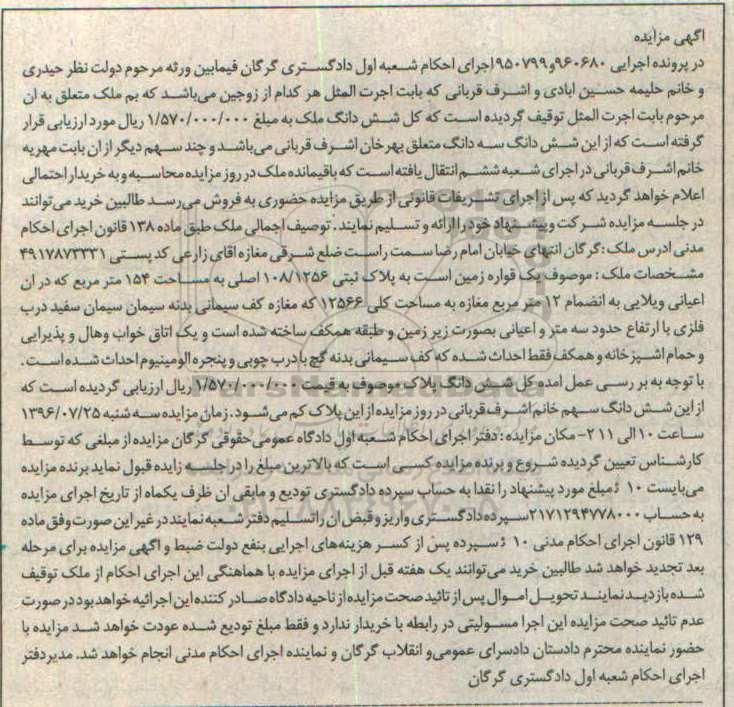 اگهی مزایده
در پرونده اجرایی ۹۶۰۶۸۰و۹۵۰۷۹۹اجرای احکام شعبه اول دادگستری گرگان فیمابین ورثه مرحوم دولت نظر حیدری
و خانم حلیمه حسین ابادی و اشرف قربانی که بابت اجرت المثل هر کدام از زوجین می‌باشد که بم ملک متعلق به ان
مرحوم بابت اجرت المثل توقیف گردیده است که کل شش دانگ ملک به مبلغ ۱/۵۷۰/۰۰۰/۰۰۰ ریال مورد ارزیابی قرار
گرفته است که از این شش دانگ سه دانگ متعلق بهرخان اشرف قربانی می‌باشد و چند سهم دیگر از ان بابت مهریه
خانم اشرف قربانی در اجرای شعبه ششم انتقال یافته است که باقیمانده ملک در روز مزایده محاسبه و به خریدار احتمالی
اعلام خواهد گردید که پس از اجرای تشریفات قانونی از طریق مزایده حضوری به فروش می‌رسد طالبین خرید می‌توانند
در جلسه مزایده شرکت وپیشنهاد خود را ارائه و تسلیم نمایند. توصیف اجمالی ملک طبق ماده ۱۳۸ قانون اجرای احکام
مدنی ادرس ملک : گرگان انتهای خیابان امام رضا سمت راست ضلع شرقی مغازه اقای زارعی کد پستی ۴۹۱۷۸۷۳۳۳۱
مشخصات ملک : موصوف یک قواره زمین است به پلاک ثبتی ۱۰۸/۱۲۵۶ اصلی به مساحت ۱۵۴ متر مربع که در ان
اعیانی ویلایی به انضمام ۱۲ متر مربع مغازه به مساحت کلی ۱۲۵۶۶ که مغازه کف سیمانی بدنه سیمان سیمان سفید درب
فلزی با ارتفاع حدود سه متر و اعیانی بصورت زیر زمین و طبقه همکف ساخته شده است و یک اتاق خواب وهال و پذیرایی
و حمام اشپزخانه و همکف فقط احداث شده که کف سیمانی بدنه گچ با درب چوبی و پنجره الومینیوم احداث شده است .
با توجه به بر رسی عمل امده کل شش دانگ پلاک موصوف به قیمت ۱/۵۷۰/۰۰۰/۰۰۰ ریال ارزیابی گردیده است که
از این شش دانگ سهم خانم اشرف قربانی در روز مزایده از این پلاک کم می‌شود. زمان مزایده سه شنبه ۱۳۹۶/۰۷/۲۵
ساعت ۱۰ الی ۱۱ ۲- مکان مزایده : دفتر اجرای احکام شعبه اول دادگاه عمومی حقوقی گرگان مزایده از مبلغی که توسط
کارشناس تعیین گردیده شروع و برنده مزایده کسی است که بالاترین مبلغ را در جلسه زایده قبول نماید برنده مزایده
می‌بایست ۱۰ مبلغ مورد پیشنهاد را نقدا به حساب سپرده دادگستری تودیع و مابقی ان ظرف یکماه از تاریخ اجرای مزایده
به حساب ۲۱۷۱۲۹۴۷۷۸۰۰۰سپرده دادگستری واریز و قبض ان را تسلیم دفتر شعبه نمایند در غیر این صورت وفق ماده
۱۲۹ قانون اجرای احکام مدنی ۱۰ سپرده پس از کسر هزینه‌های اجرایی بنفع دولت ضبط و اگهی مزایده برای مرحله
بعد تجدید خواهد شد طالبین خرید می‌توانند یک هفته قبل از اجرای مزایده با هماهنگی این اجرای احکام از ملک توقیف
شده بازدید نمایند تحویل اموال پس از تائید صحت مزایده از ناحیه دادگاه صادر کننده این اجرائیه خواهد بود در صورت
عدم تائید صحت مزایده این اجرا مسولیتی در رابطه با خریدار ندارد و فقط مبلغ تودیع شده عودت خواهد شد مزایده با
حضور نماینده محترم دادستان دادسرای عمومی‌و انقلاب گرگان و نماینده اجرای احکام مدنی انجام خواهد شد. مدیر دفتر
اجرای احکام شعبه اول دادگستری گرگان